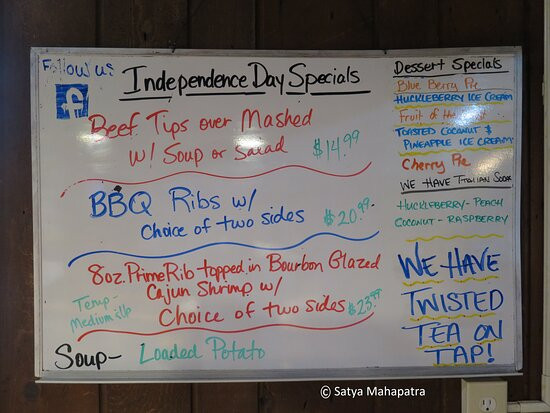 Follow us
f
Independence Day Specials
Beef Tips over Mashed
w/ Soup or Salad $14.99
BBQ Ribs w/
Choice of two sides $20.99
8oz. Prime Rib topped in Bourbon Glazed
Cajun Shrimp w/
Choice of two sides $23.99
Temp-
Medium
Soup- Loaded Potato
Dessert Specials
Blue Berry Pie
HUCKLEBERRY ICE CREAM
Fruit of the
TOASTED COCONUT &
PINEAPPLE ICE CREAM
Cherry Pie
WE HAVE ITALIAN SODA
HUCKLEBERRY - PEACH
COCONUT - RASPBERRY
WE HAVE
TWISTED
TEA ON
TAP!
© Satya Mahapatra